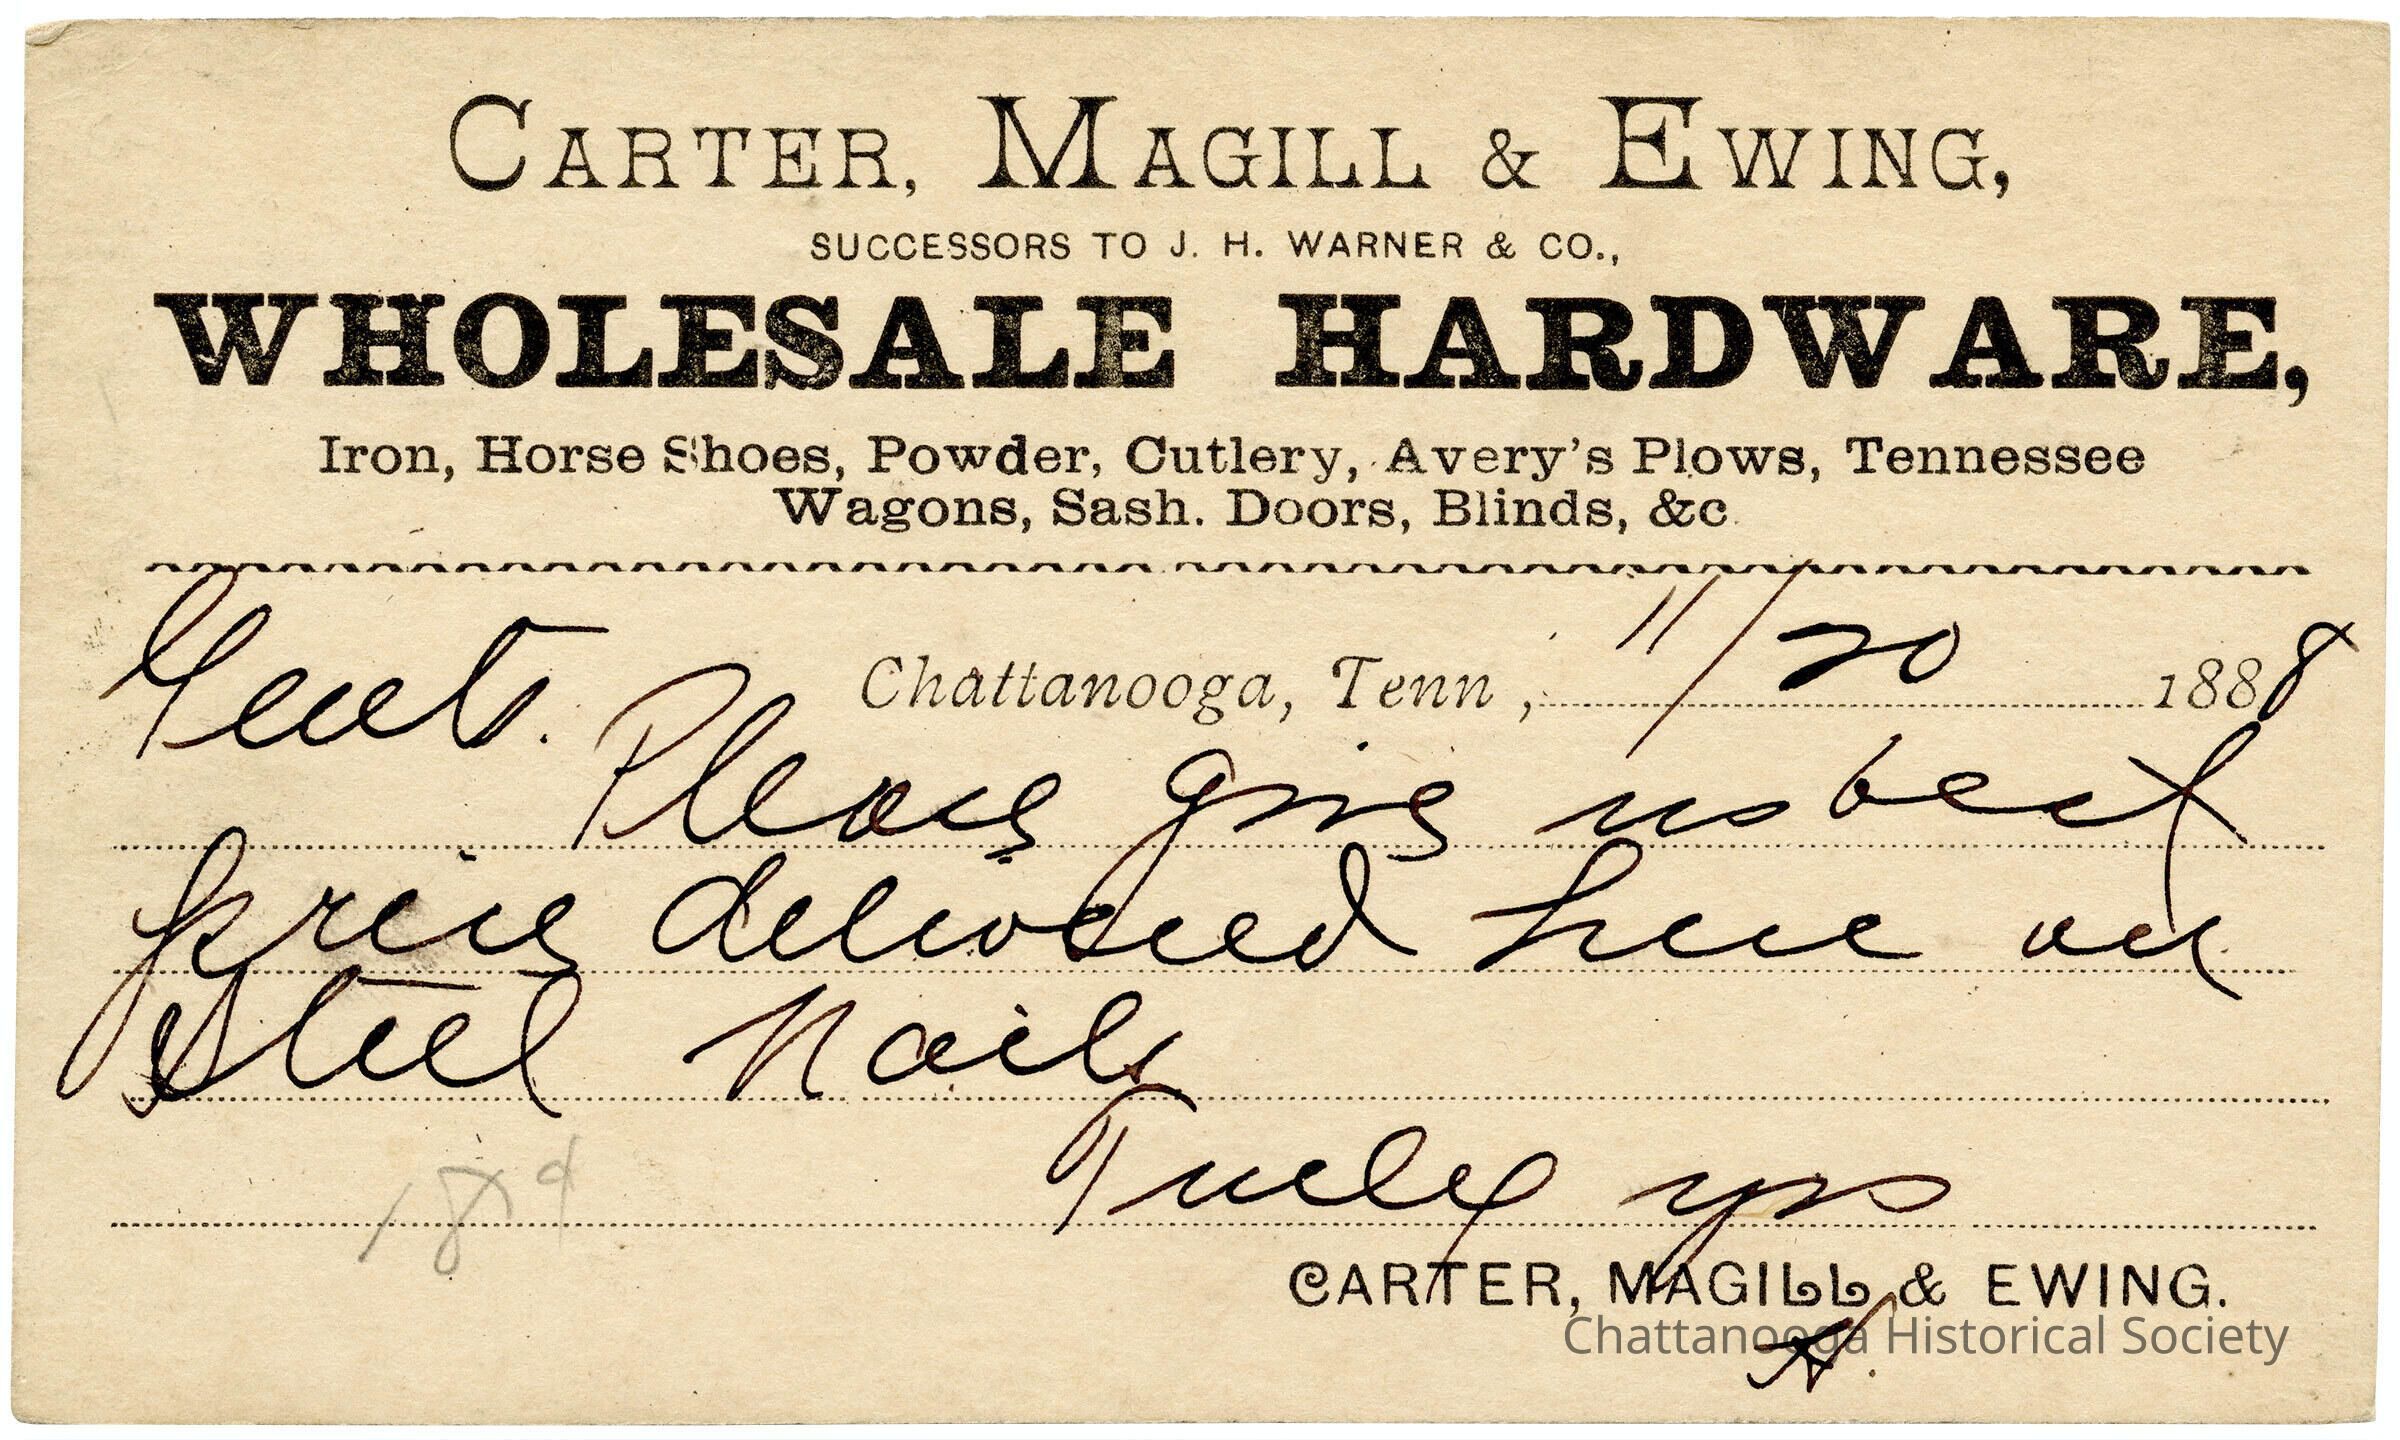 CARTER, MAGILL & EWING,
SUCCESSORS TO J. H. WARNER & CO.,
WHOLESALE HARDWARE,
Iron, Horse Shoes, Powder, Cutlery, Avery's Plows, Tennessee
Wagons, Sash. Doors, Blinds, &c
Chattanooga, Tenn, 11/20 1888
Gents.
Please give us best
price delivered here on
Steel Nails
Truly yrs
CARTER, MAGILL & EWING.
Chattanooga Historical Society